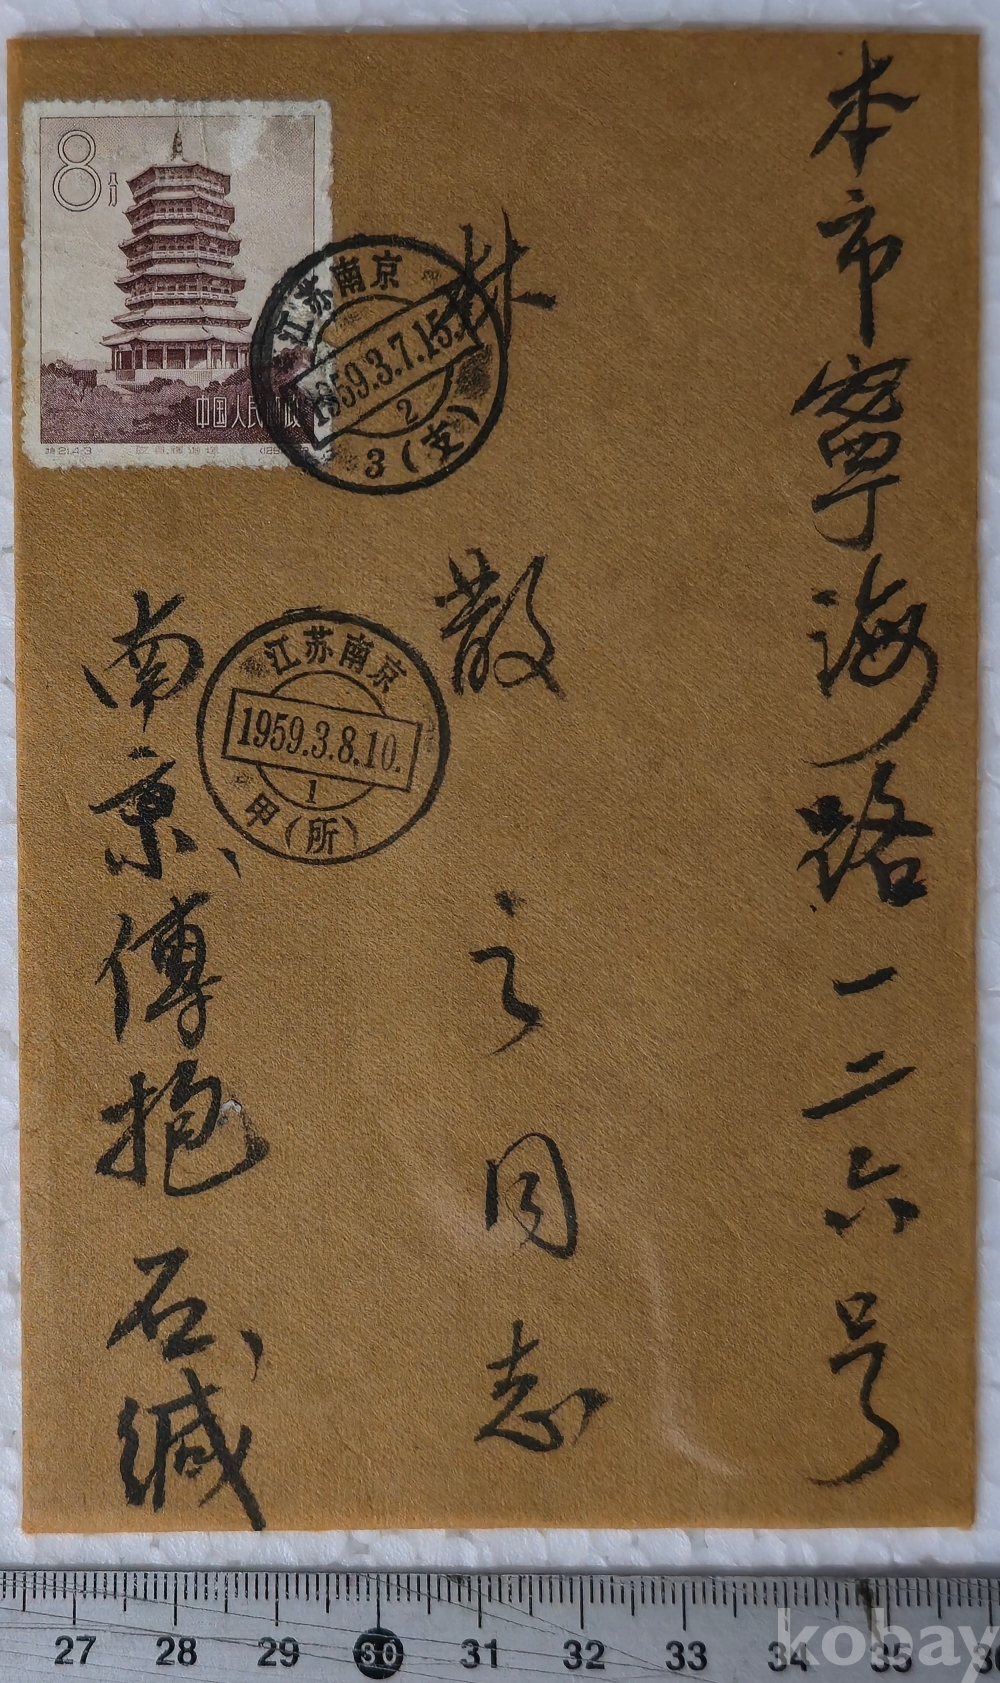 本市寧海路一二六号
林散之同志
南京、傅抱石、缄
8分
中国人民邮政
特21.4-3
江苏南京
1959.3.7.15.
2
3(支)
江苏南京
1959.3.8.10.
1
甲(所)
27 28 29 30 31 32 33 34 35 36
kobay